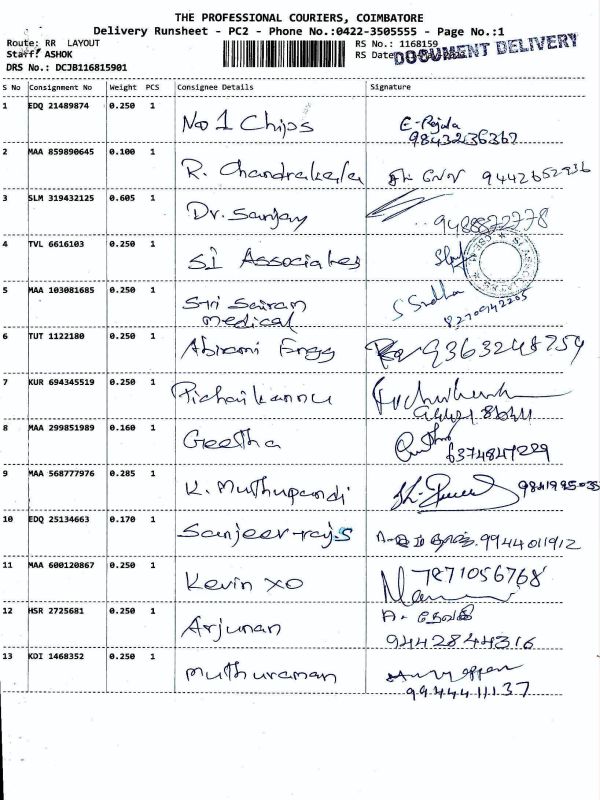 THE PROFESSIONAL COURIERS, COIMBATORE
Delivery Runsheet - PC2 - Phone No.:0422-3505555 - Page No.:1
Route: RR LAYOUT RS No.: 1168159
Staff: ASHOK RS Date
DOCUMENT DELIVERY
DRS No.: DCJB116815901
S No Consignment No Weight PCS Consignee Details Signature
1 EDQ 21489874 0.250 1 No 1 Chips
9843236367
2 MAA 859890645 0.100 1 R. Chandrakala 9442652936
3 SLM 319432125 0.605 1 Dr. Sanjay 9488872778
4 TVL 6616103 0.250 1 SI Associates
5 MAA 103081685 0.250 1 Sri Sairam S Sudha
medical 8270942205
6 TUT 1122180 0.250 1 Abirami Engg 9363248759
7 KUR 694345519 0.250 1 Pichaikannu
8 MAA 299851989 0.160 1 Geetha
6374847229
9 MAA 568777976 0.285 1 K. Muthupandi
10 EDQ 25134663 0.170 1 Sanjeev raj.S 9944011912
11 MAA 600120867 0.250 1 Kevin xo 7871056768
12 HSR 2725681 0.250 1 Arjunan
9442844316
13 KDI 1468352 0.250 1 muthuraman
9944411137